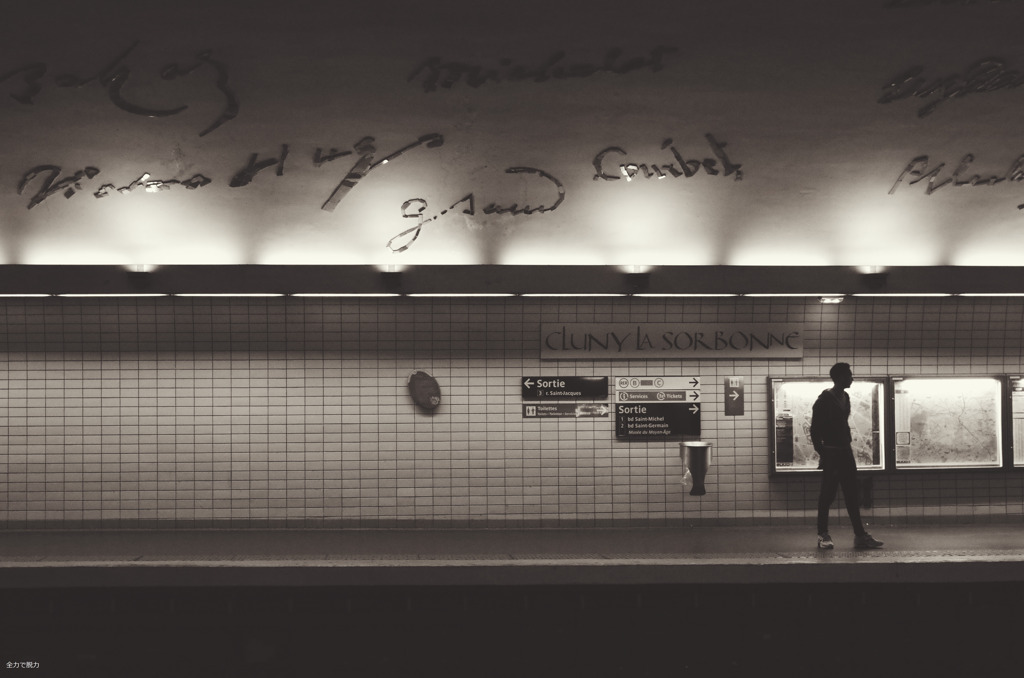 Balzac
Michelet
Victor Hugo
G. Sand
Courbet
CLUNY LA SORBONNE
← Sortie
3 r. Saint-Jacques
Toilettes
RER B C →
Services Tickets →
Sortie →
1 bd Saint-Michel
2 bd Saint-Germain
Musée du Moyen-Âge
全力で脱力